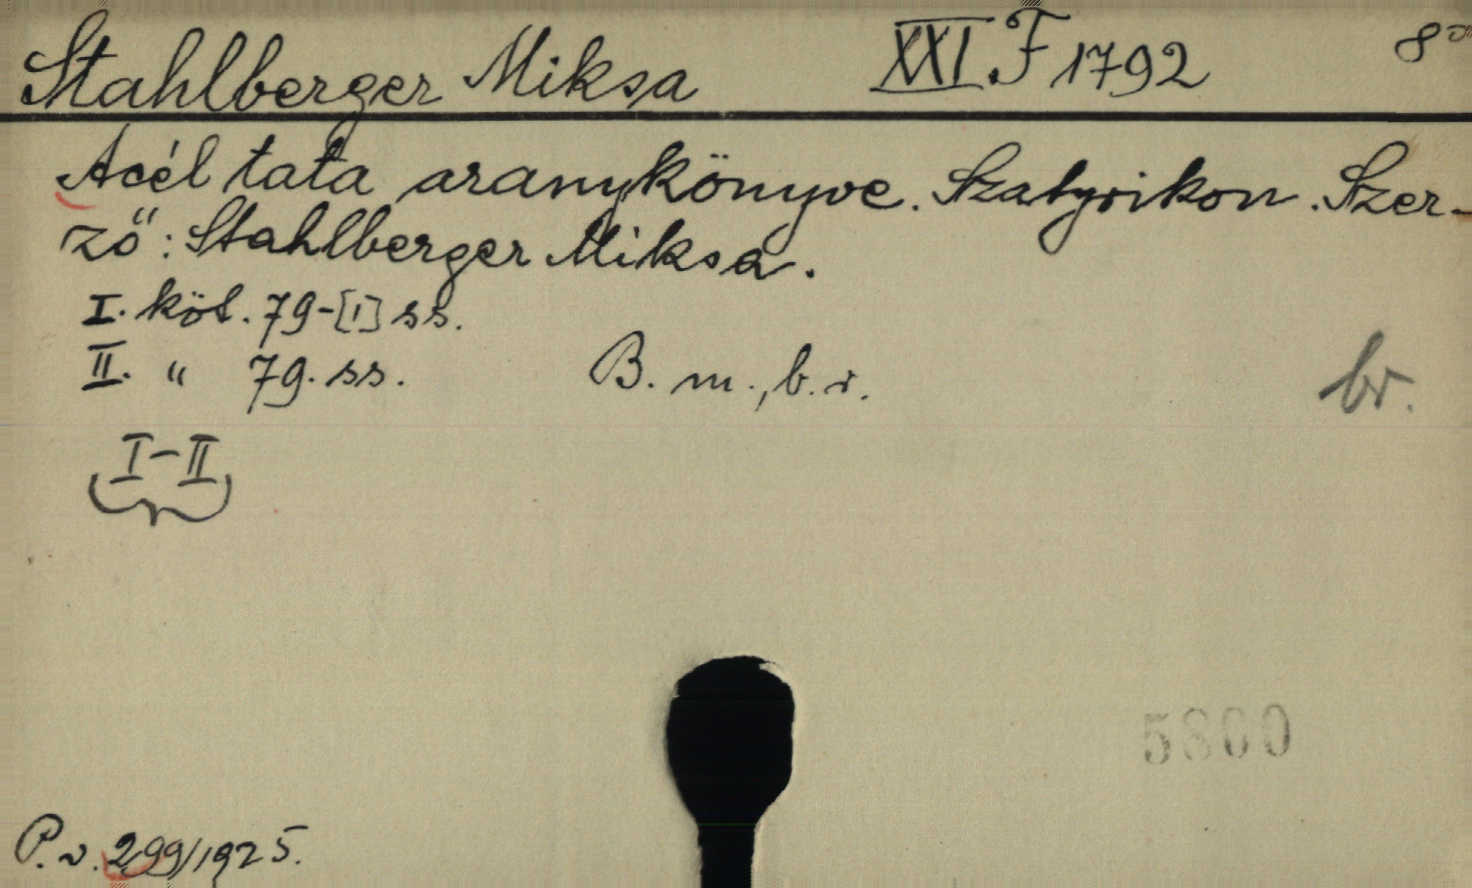 Stahlberger Miksa XXI.F 1792 8°
Acél tata aranykönyve. Szatyrikon. Szer-
ző: Stahlberger Miksa.
I. köt. 79-[1] ss.
II. " 79. ss. B. m., b. é. br.
I-II
5800
P. v. 299/1925.